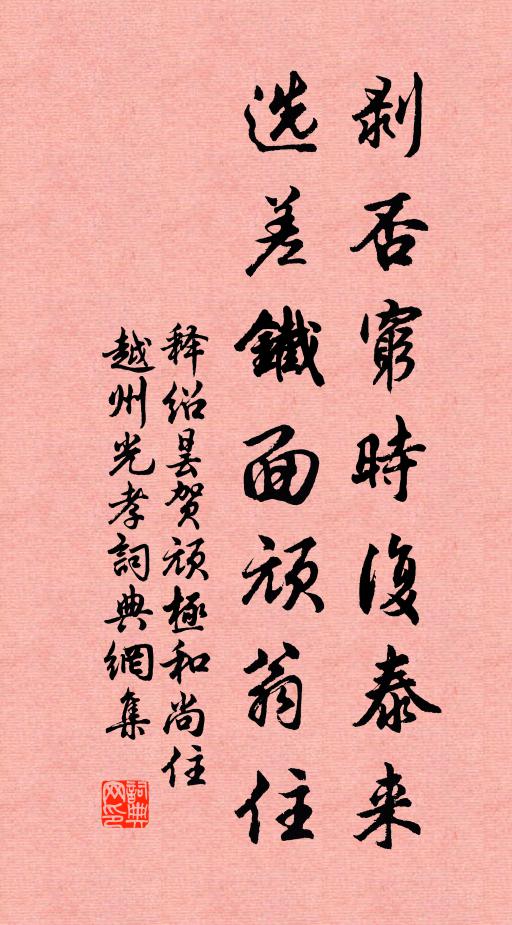 剥否窮時復泰来
选差鐵面頑翁住
释紹昙贺頑極和尚住
越州光孝詞典網集
詞典网印